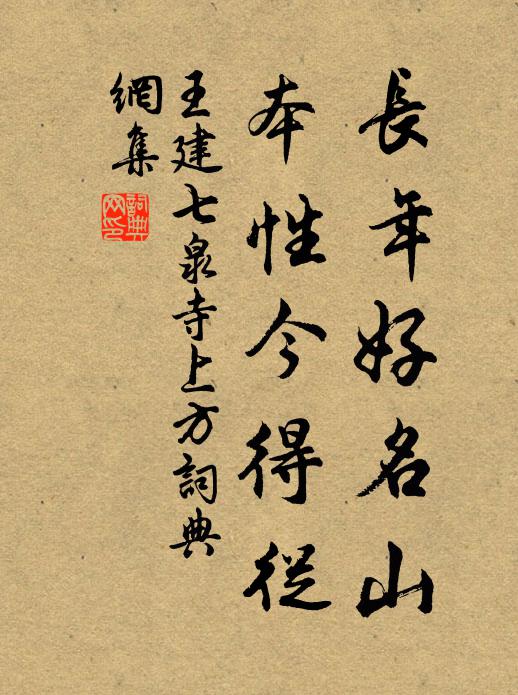 長年好名山
本性今得從
王建七泉寺上方詞典
網集
詞典
网印